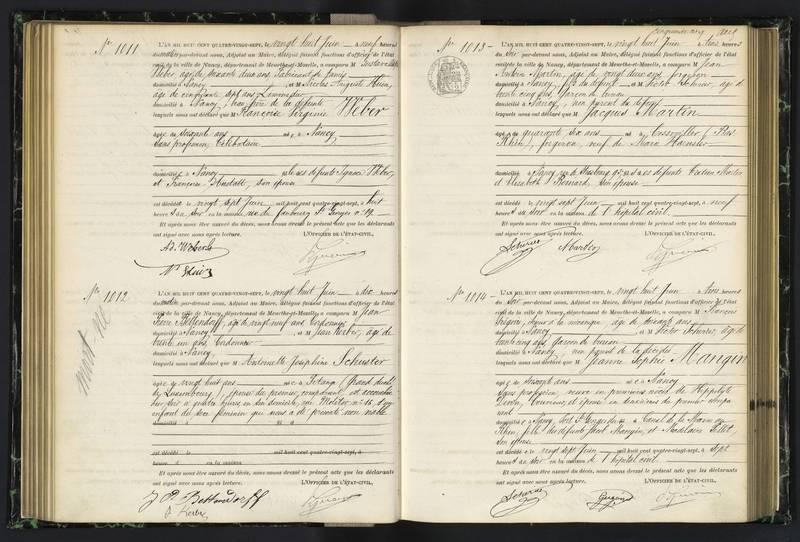 cinquante cinq
Nº 1011
L'AN MIL HUIT CENT QUATRE-VINGT-SEPT, le vingt huit Juin à neuf heures
du matin par-devant nous, Adjoint au Maire, délégué faisant fonctions d'officier de l'état
civil de la ville de Nancy, département de Meurthe-et-Moselle, a comparu M
Weber, âgé de soixante deux ans
domicilié à Nancy, et M Nicolas Auguste
âgé de cinquante sept ans
domicilié à Nancy, de la défunte
lesquels nous ont déclaré que M Françoise Virginie Weber
âgée de soixante ans née à Nancy
sans profession, célibataire
domiciliée à Nancy Ignace Weber,
et Françoise son épouse
est décédée le vingt sept Juin mil huit cent quatre-vingt-sept, à huit
heures du soir en la maison rue du faubourg St Georges nº 19.
Et après nous être assuré du décès, nous avons dressé le présent acte que les déclarants
ont signé avec nous après lecture. L'OFFICIER DE L'ÉTAT-CIVIL,
Nº 1012
mort né
L'AN MIL HUIT CENT QUATRE-VINGT-SEPT, le vingt huit Juin à dix heures
du matin par-devant nous, Adjoint au Maire, délégué faisant fonctions d'officier de l'état
civil de la ville de Nancy, département de Meurthe-et-Moselle, a comparu M Jean
âgé de vingt neuf ans Cordonnier
domicilié à Nancy, et M Jean Kerbe, âgé de
trente un ans, Cordonnier
domicilié à Nancy,
lesquels nous ont déclaré que M Antoinette Joséphine Schuster
âgée de vingt huit ans née à Pétange (Grand duché
de Luxembourg), épouse du premier comparant est accouchée
hier soir à quatre heures en son domicile, rue Molitor nº 15, d'un
enfant du sexe féminin qui nous a été présenté non viable
domicilié à
est décédé le mil huit cent quatre-vingt-sept, à
heures en la maison
Et après nous être assuré du décès, nous avons dressé le présent acte que les déclarants
ont signé avec nous après lecture. L'OFFICIER DE L'ÉTAT-CIVIL,
J Kerbe
Nº 1013
L'AN MIL HUIT CENT QUATRE-VINGT-SEPT, le vingt huit Juin à trois heures
du soir par-devant nous, Adjoint au Maire, délégué faisant fonctions d'officier de l'état
civil de la ville de Nancy, département de Meurthe-et-Moselle, a comparu M Jean
Martin, âgé de vingt deux ans forgeron
domicilié à Nancy, fils du défunt et M Victor Scherrer, âgé de
trente cinq ans, garçon de bureau
domicilié à Nancy, non parent du défunt
lesquels nous ont déclaré que M Jacques Martin
âgé de quarante six ans né à (Bas
Rhin), forgeron, veuf de Marie
domicilié à Nancy, rue de Strasbourg défunts Martin
et Elisabeth Bernard, son épouse
est décédé le vingt sept Juin mil huit cent quatre-vingt-sept, à neuf
heures du soir en la maison de l'hôpital civil.
Et après nous être assuré du décès, nous avons dressé le présent acte que les déclarants
ont signé avec nous après lecture. L'OFFICIER DE L'ÉTAT-CIVIL,
Nº 1014
L'AN MIL HUIT CENT QUATRE-VINGT-SEPT, le vingt huit Juin à trois heures
du soir par-devant nous, Adjoint au Maire, délégué faisant fonctions d'officier de l'état
civil de la ville de Nancy, département de Meurthe-et-Moselle, a comparu M François
âgé de soixante ans
domicilié à Nancy, et M Victor Scherrer, âgé de
trente cinq ans, garçon de bureau
domicilié à Nancy, non parent de la décédée
lesquels nous ont déclaré que M Jeanne Sophie Mangin
âgée de soixante ans née à Nancy
sans profession, veuve en premières noces de Hippolyte
et épouse en deuxièmes du premier compa
rant
domiciliée à Nancy, Canal de la Marne au
Rhin, fille des défunts Mangin, et Madeleine
son épouse
est décédée le vingt sept Juin mil huit cent quatre-vingt-sept, à sept
heures du soir en la maison de l'hôpital civil
Et après nous être assuré du décès, nous avons dressé le présent acte que les déclarants
ont signé avec nous après lecture. L'OFFICIER DE L'ÉTAT-CIVIL,